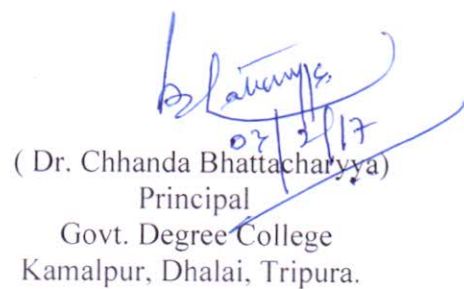 ( Dr. Chhanda Bhattacharyya)
Principal
Govt. Degree College
Kamalpur, Dhalai, Tripura.